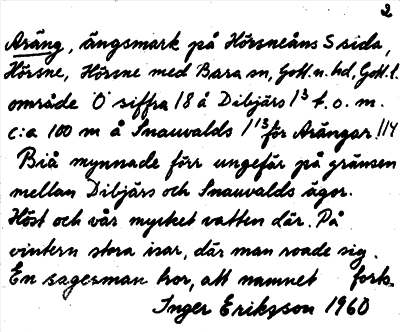 2
Aräng, ängsmark på Hörsneåns S sida,
Hörsne, Hörsne med Bara sn, Gotl. n. hd, Gotl. l.
område Ö siffra 18 å Dibjärs 1³ t. o. m.
c:a 100 m å Snauvalds 1¹³ för Arängar 1/14
Biå mynnade förr ungefär på gränsen
mellan Dibjärs och Snauvalds ägor.
Höst och vår mycket vatten där. På
vintern stora isar, där man roade sig.
En sagesman tror, att namnet forts.
Inger Eriksson 1960